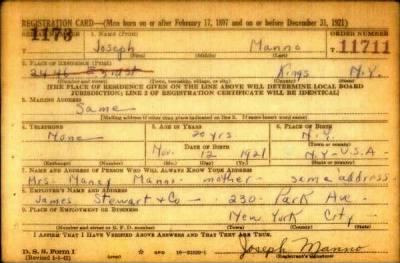 REGISTRATION CARD—(Men born on or after February 17, 1897 and on or before December 31, 1921)
SERIAL NUMBER 1. NAME (Print) ORDER NUMBER
1173 Joseph Manno 11711
(First) (Middle) (Last)
2. PLACE OF RESIDENCE (Print)
2446 Kings N.Y.
(Number and street) (Town, township, village, or city) (County) (State)
[THE PLACE OF RESIDENCE GIVEN ON THE LINE ABOVE WILL DETERMINE LOCAL BOARD
JURISDICTION; LINE 2 OF REGISTRATION CERTIFICATE WILL BE IDENTICAL]
3. MAILING ADDRESS
Same
[Mailing address if other than place indicated on line 2. If same insert word same]
4. TELEPHONE 5. AGE IN YEARS 6. PLACE OF BIRTH
None 20 yrs N.Y.
DATE OF BIRTH (Town or county)
Nov. 12 1921 N.Y. U.S.A
(Exchange) (Number) (Mo.) (Day) (Yr.) (State or country)
7. NAME AND ADDRESS OF PERSON WHO WILL ALWAYS KNOW YOUR ADDRESS
Mrs. Nancy Manno mother - same address
8. EMPLOYER'S NAME AND ADDRESS
James Stewart & Co - 230 - Park Ave -
9. PLACE OF EMPLOYMENT OR BUSINESS
New York City -
(Number and street or R. F. D. number) (Town) (County) (State)
I AFFIRM THAT I HAVE VERIFIED ABOVE ANSWERS AND THAT THEY ARE TRUE.
D. S. S. Form 1 Joseph Manno
(Registrant's signature)